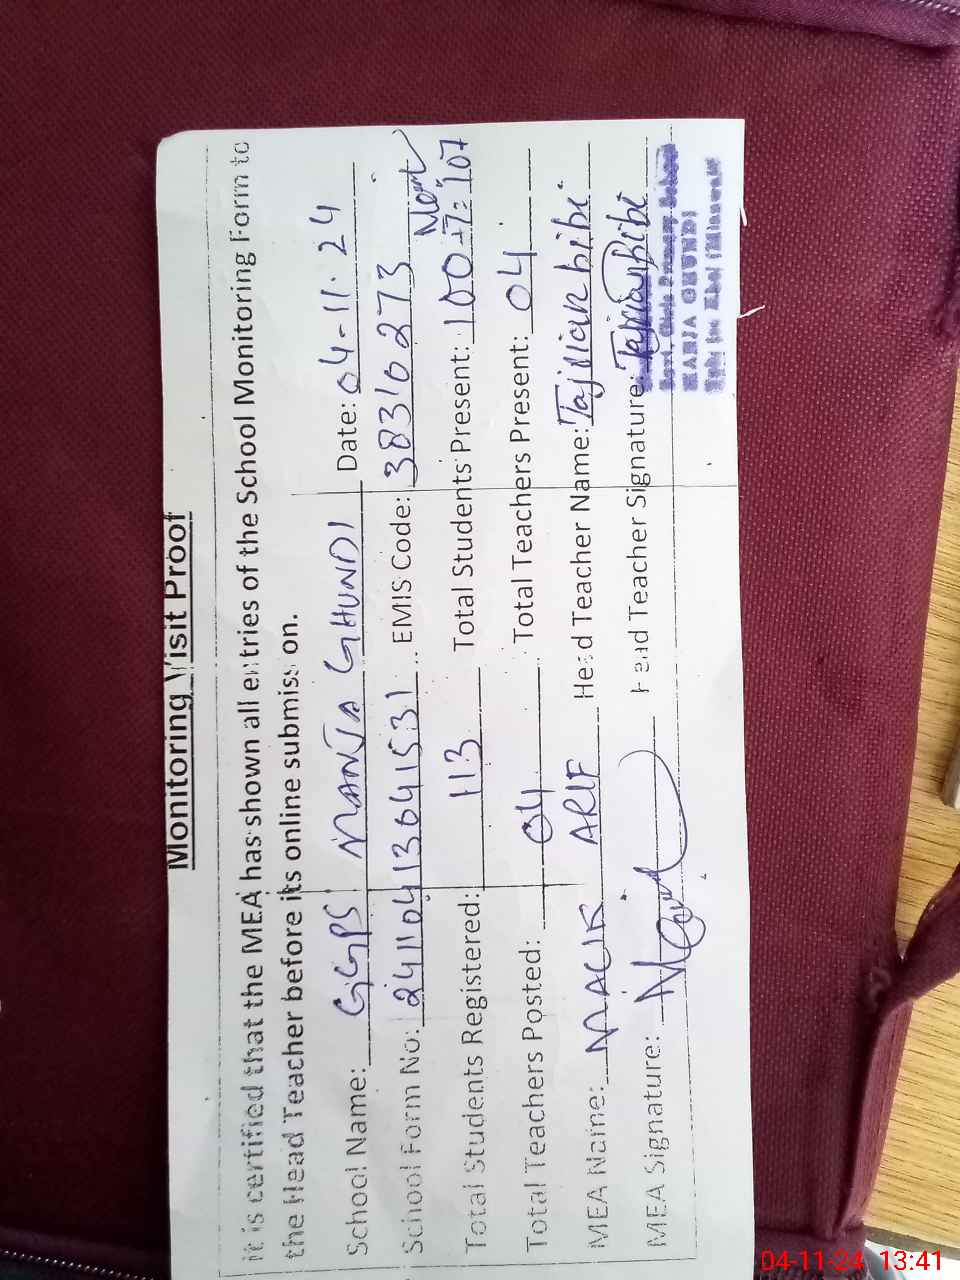 Monitoring Visit Proof
it is certified that the MEA has shown all entries of the School Monitoring Form to
the Head Teacher before its online submission.
School Name: GGPS MANJA GHUNDI Date: 04-11-24
School Form No: 24110413641531 EMIS Code: 38310273
Total Students Registered: 113 Total Students Present: 100+7=107
Total Teachers Posted: 04 Total Teachers Present: 04
MEA Name: MALIK ARIF Head Teacher Name: Tajdar bibi
MEA Signature: Head Teacher Signature:
Govt. Girls Primary School
MANJA GHUNDI
04-11-24 13:41